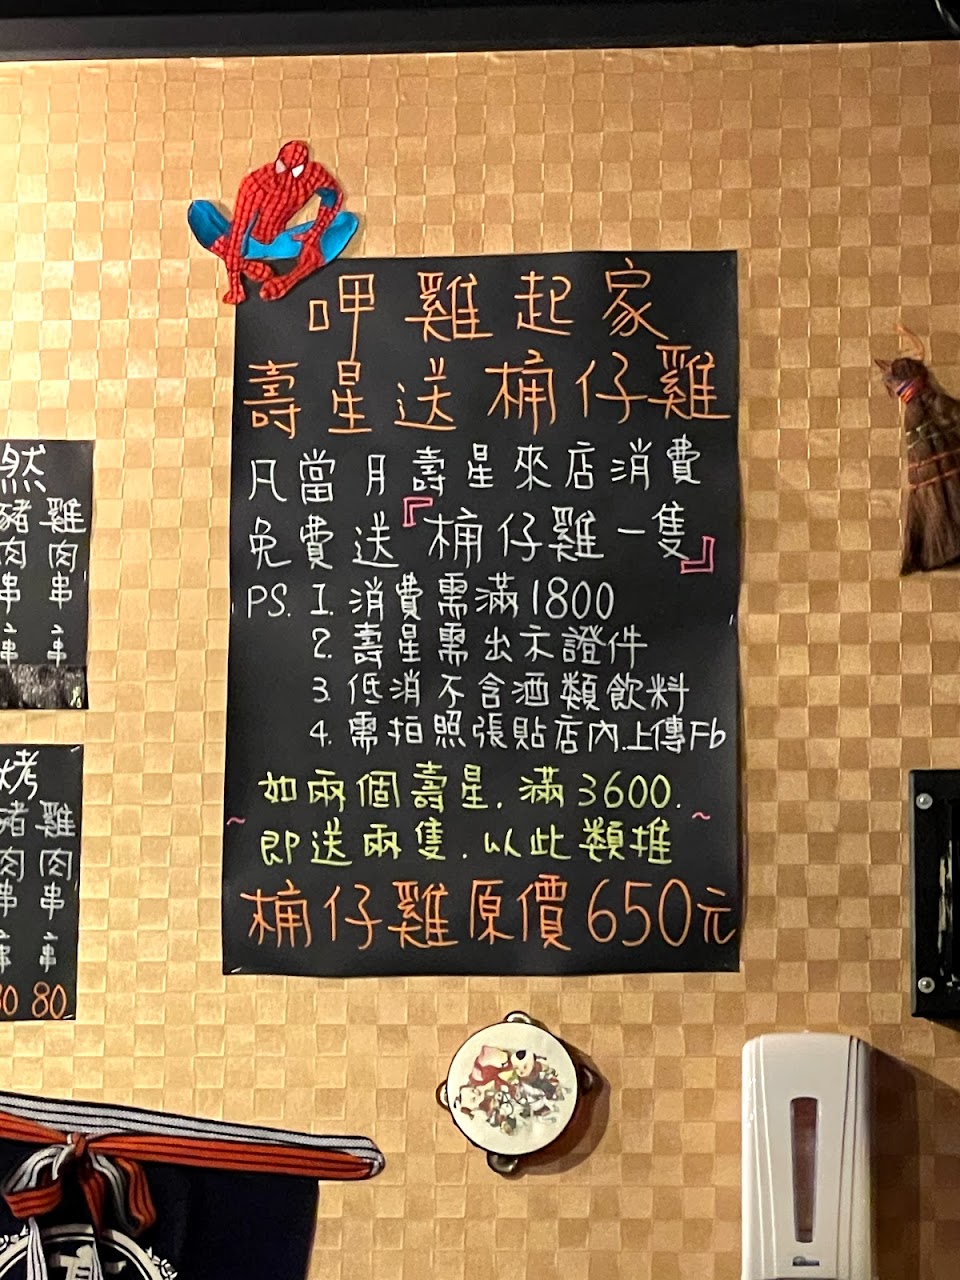 呷雞起家
壽星送桶仔雞
凡當月壽星來店消費
免費送『桶仔雞一隻』
PS. 1. 消費需滿1800
2. 壽星需出示證件
3. 低消不含酒類飲料
4. 需拍照張貼店內上傳Fb
如兩個壽星.滿3600.
~即送兩隻.以此類推~
桶仔雞原價650元
然
豬肉串 2串
雞肉串 2串
烤
豬肉串 2串
雞肉串 2串 80